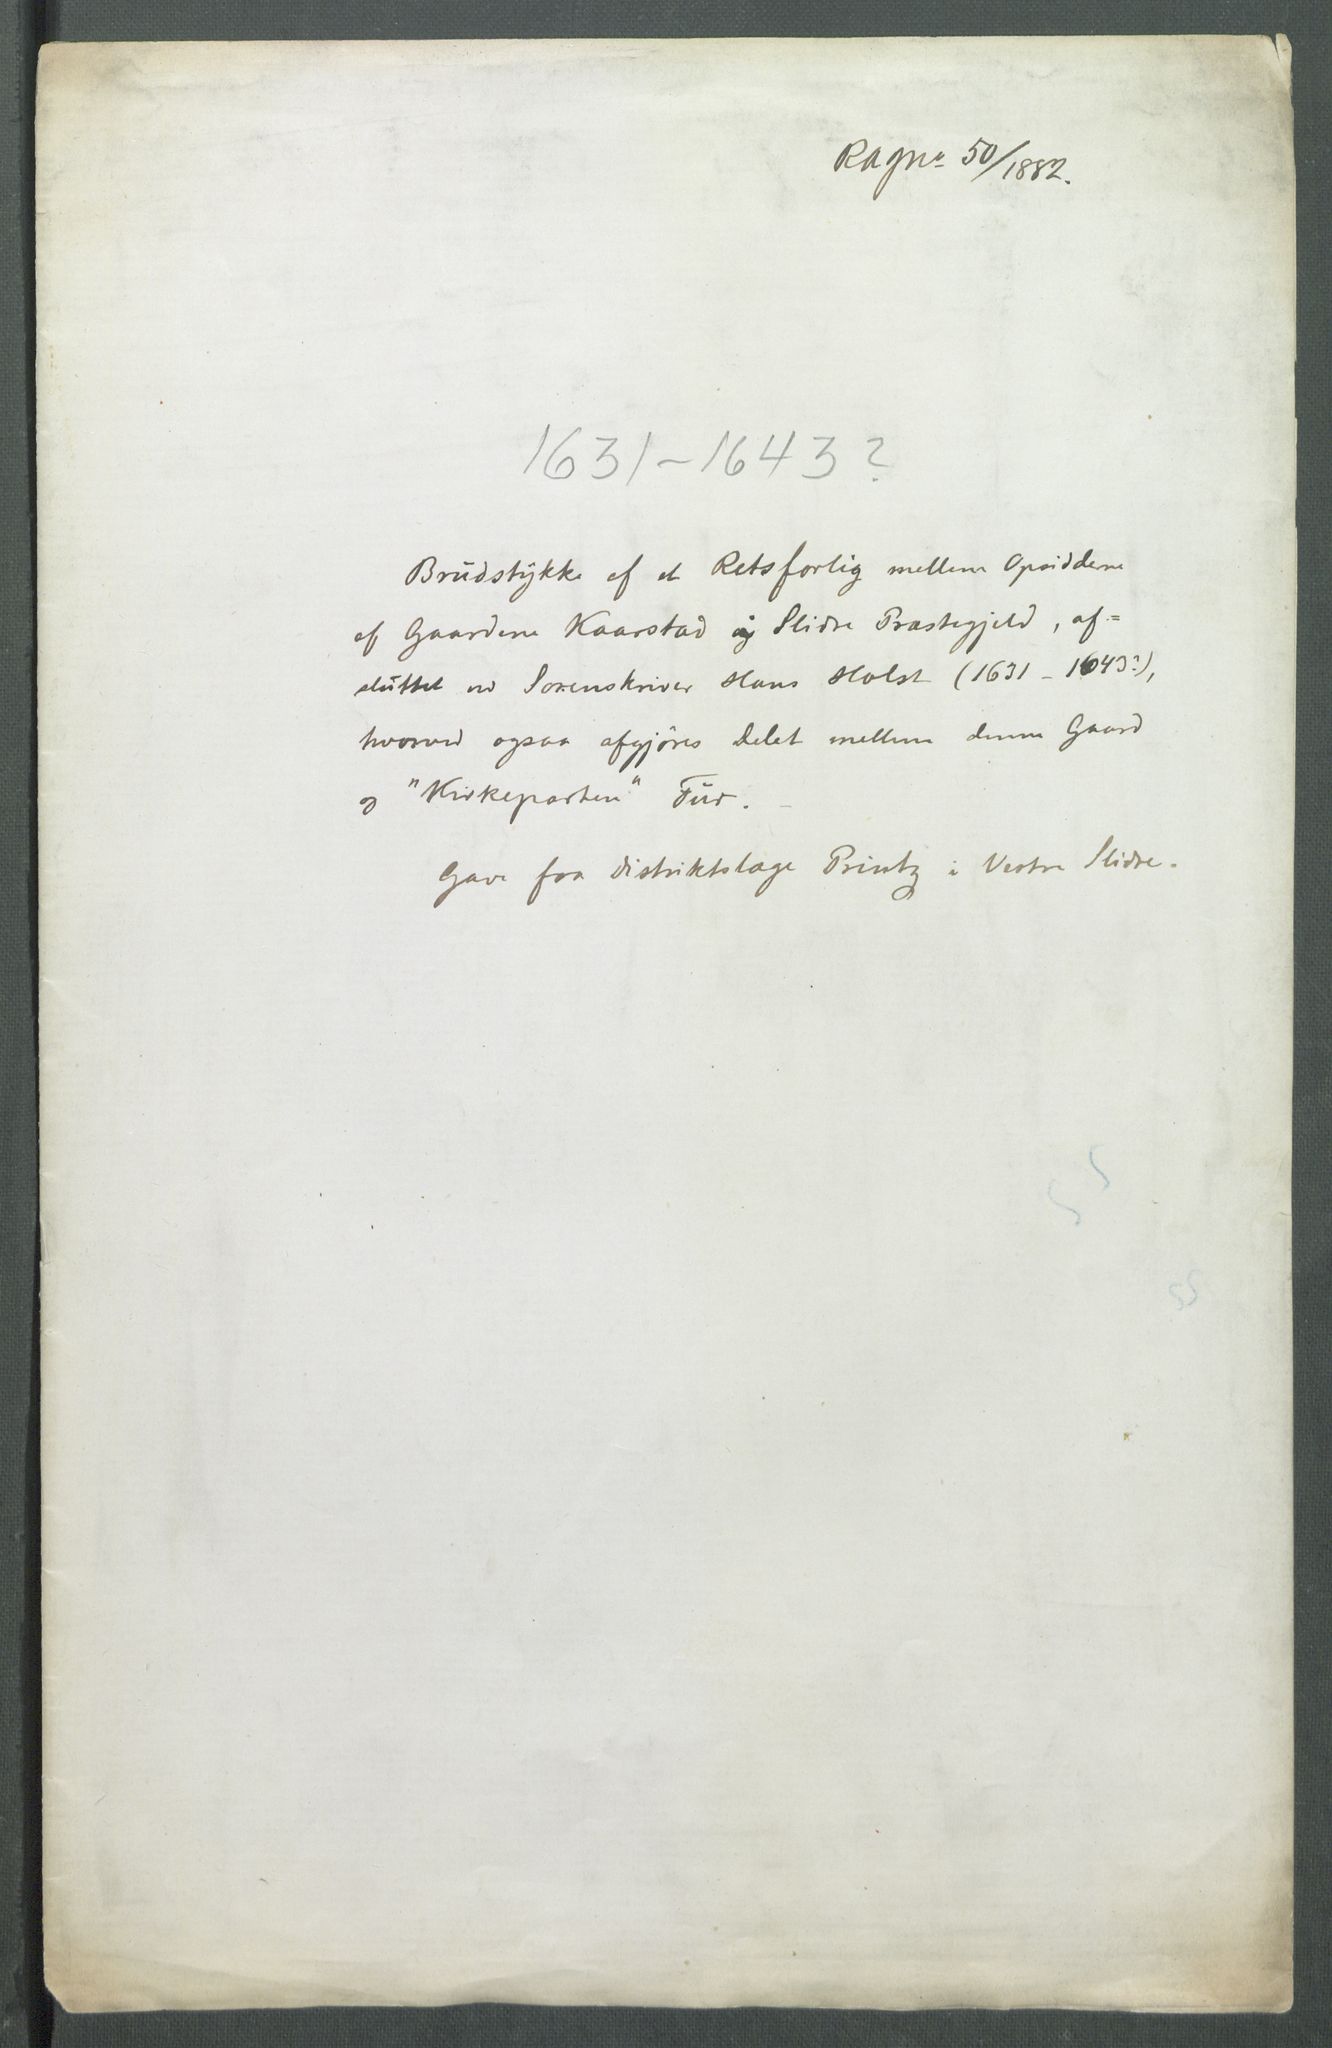 RAgnr 50/1882.
1631-1643?
Brudstykke af et Retsforlig mellem Opsidderne
af Gaardene Kaarstad i Slidre Præstegjeld, af=
sluttet ved Sorenskriver Hans Holst (1631-1643?),
hvorved ogsaa afgjöres Delet mellem denne Gaard
og "Kirkeparten" Fur.
Gave fra Distriktslæge Printz i Vestre Slidre.